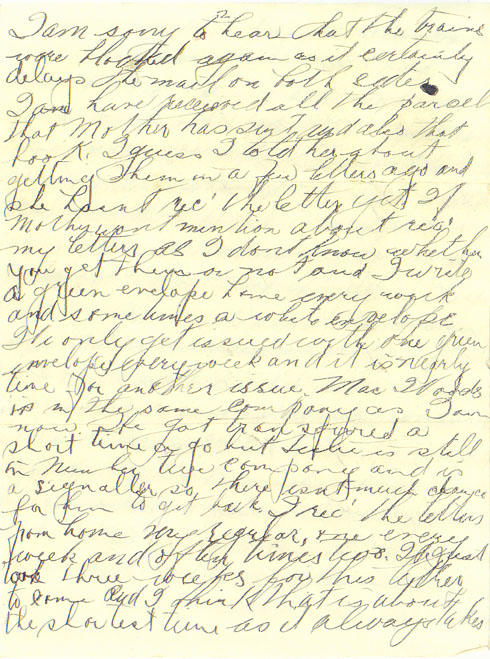 I am sorry to hear that the trains
were blocked again as it certainly
delays the mail on both ends
I and have received all the parcel
that Mother has sent, and also that
book. I guess I told her about
getting them in a few letters ago and
she hasnt rec' the letter yet If
Mother wont mention about rec'
my letters as I dont know whether
you get them or not and I write
a green envelope home every week
and sometimes a white envelope
I only get issued with one green
envelope every week and it is nearly
time for another issue. Mac Woods
is in the same company as I am
now. He got transfered a
short time ago but Leslie is still
in Number two company and is
a signaller so there isnt much chance
for him to get back I rec' the letters
from home very regular, one every
week and often times two. It just
took three weeks for this letter
to come and I think that is about
the shortest time as it always takes